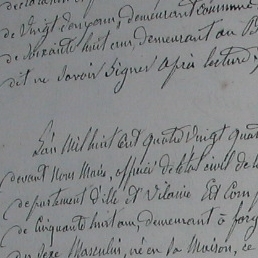 de Vingt cinq ans, demeurant
de soixante huit ans, demeurant au B
dit ne savoir signer après lecture
L'an Mil huit cent quatre Vingt quat
devant Nous Maire, officier de l'état civil de la
département d'ille et Vilaine Est Com
de Cinquante huit ans, demeurant à
du sexe Masculin, né en sa Maison, ce